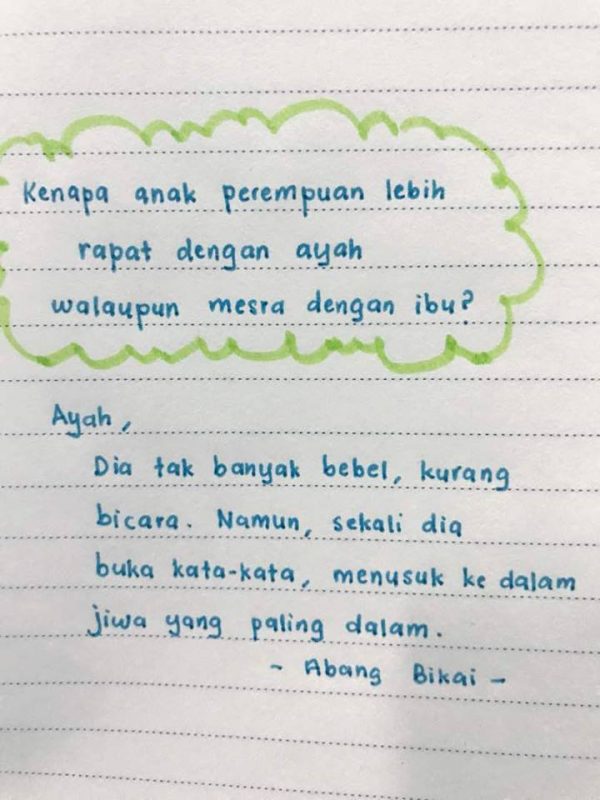 Kenapa anak perempuan lebih
rapat dengan ayah
walaupun mesra dengan ibu?
Ayah,
Dia tak banyak bebel, kurang
bicara. Namun, sekali dia
buka kata-kata, menusuk ke dalam
jiwa yang paling dalam.
- Abang Bikai -